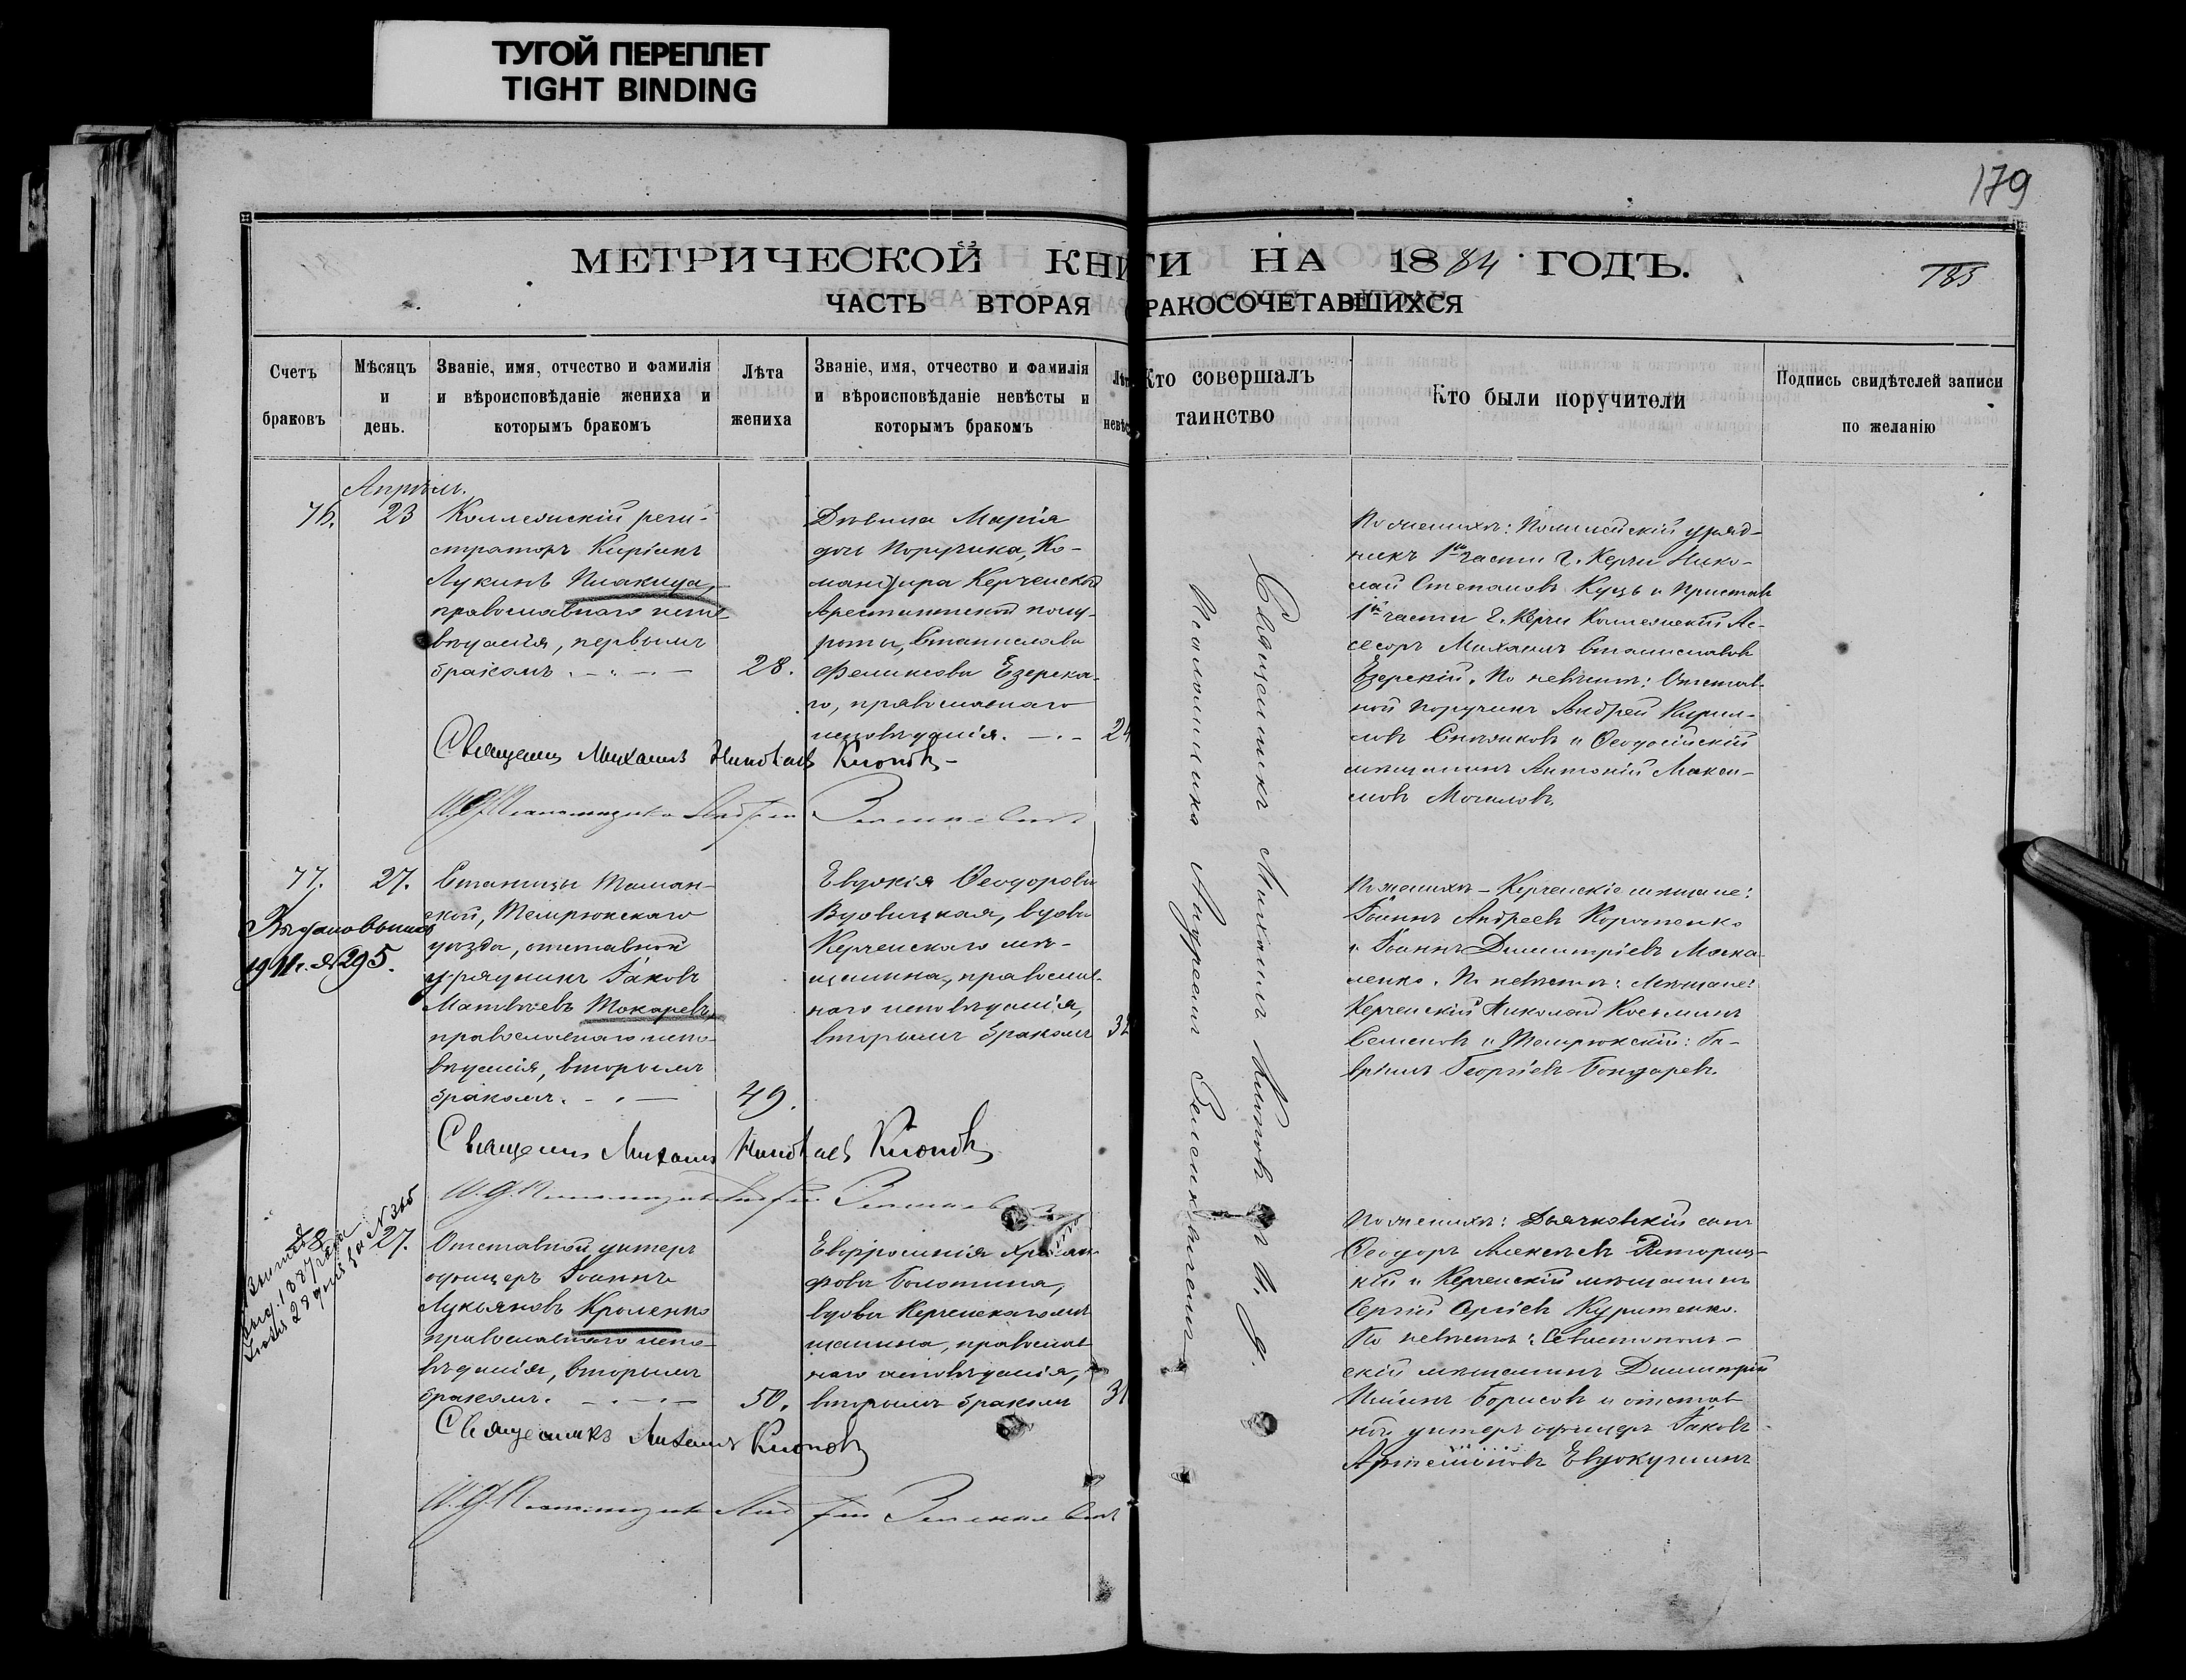 ТУГОЙ ПЕРЕПЛЕТ
TIGHT BINDING
179
МЕТРИЧЕСКОЙ КНИГИ НА 1884 ГОДЪ.
185
ЧАСТЬ ВТОРАЯ БРАКОСОЧЕТАВШИХСЯ
Счетъ
браковъ
Мѣсяцъ
и
день.
Званіе, имя, отчество и фамилія
и вѣроисповѣданіе жениха и
которымъ бракомъ
Лѣта
жениха
Званіе, имя, отчество и фамилія
и вѣроисповѣданіе невѣсты и
которымъ бракомъ
Лѣт
невѣс
Кто совершалъ
таинство
Кто были поручители
Подпись свидѣтелей записи
по желанію
Апрѣль.
76.
23
Коллежскій реги-
страторъ
Лукинъ
православнаго испо-
вѣданія, первымъ
бракомъ.
28.
Дѣвица Марія
дочь Поручика, Ко-
мандира Керченской
Арестантской полу-
роты, Станислава
Феликсова Езерска-
го, православнаго
исповѣданія.
24
По женихѣ: Полицейскій уряд-
никъ 1й части г. Керчи Нико-
лай Степановъ Куць и Приставъ
1й части г. Керчи Коллежскій Ас-
сесоръ Михаилъ Станиславовъ
Езерскій. По невѣстѣ: Отстав-
ной Поручикъ Андрей Кирил-
ловъ и Ѳеодосійскій
мѣщанинъ Антоній Макси-
мовъ Могиловъ
Священникъ Михаилъ Николаевъ Кпоповъ
И. Д. Псаломщика Андрей
77.
27.
Богдановымъ
1911 г. № 295.
Станицы Таман-
ской, Темрюкскаго
уѣзда, отставной
урядникъ Іаковъ
Матвѣевъ Токаревъ,
православнаго испо-
вѣданія, вторымъ
бракомъ.
49.
Евдокія Ѳеодорова
Вдовицкая, вдова
Керченскаго мѣ-
щанина, православ-
наго исповѣданія,
вторымъ бракомъ
32
По женихѣ - Керченскіе мѣщане:
Іоаннъ Андреевъ Коротенко
и Іоаннъ Димитріевъ Моска-
ленко. По невѣстѣ: Мѣщане:
Керченскій Николай Косьминъ
Семеновъ и Темрюкскій: Га-
вріилъ Георгіевъ Бондаревъ.
Священникъ Михаилъ Николаевъ
И. Д. Псаломщика Андрей
78
27.
Отставной унтеръ
офицеръ Іоаннъ
Лукьяновъ Кроленко
православнаго испо-
вѣданія, вторымъ
бракомъ.
50.
Евфросинія
фова Болотина,
вдова Керченскаго мѣ-
щанина, православ-
наго исповѣданія,
вторымъ бракомъ
31
По женихѣ: Дьячковскій сынъ
Ѳеодоръ Алексѣевъ Риториц-
кій и Керченскій мѣщанинъ
Сергій Сергіевъ Куритенко.
По невѣстѣ: Севастополь-
скій мѣщанинъ Димитрій
Борисовъ и отстав-
ной унтеръ офицеръ Іаковъ
Евдокушинъ
Священникъ Михаилъ
И. Д. Псаломщика Андрей
Священникъ Михаилъ
Псаломщика Андреемъ